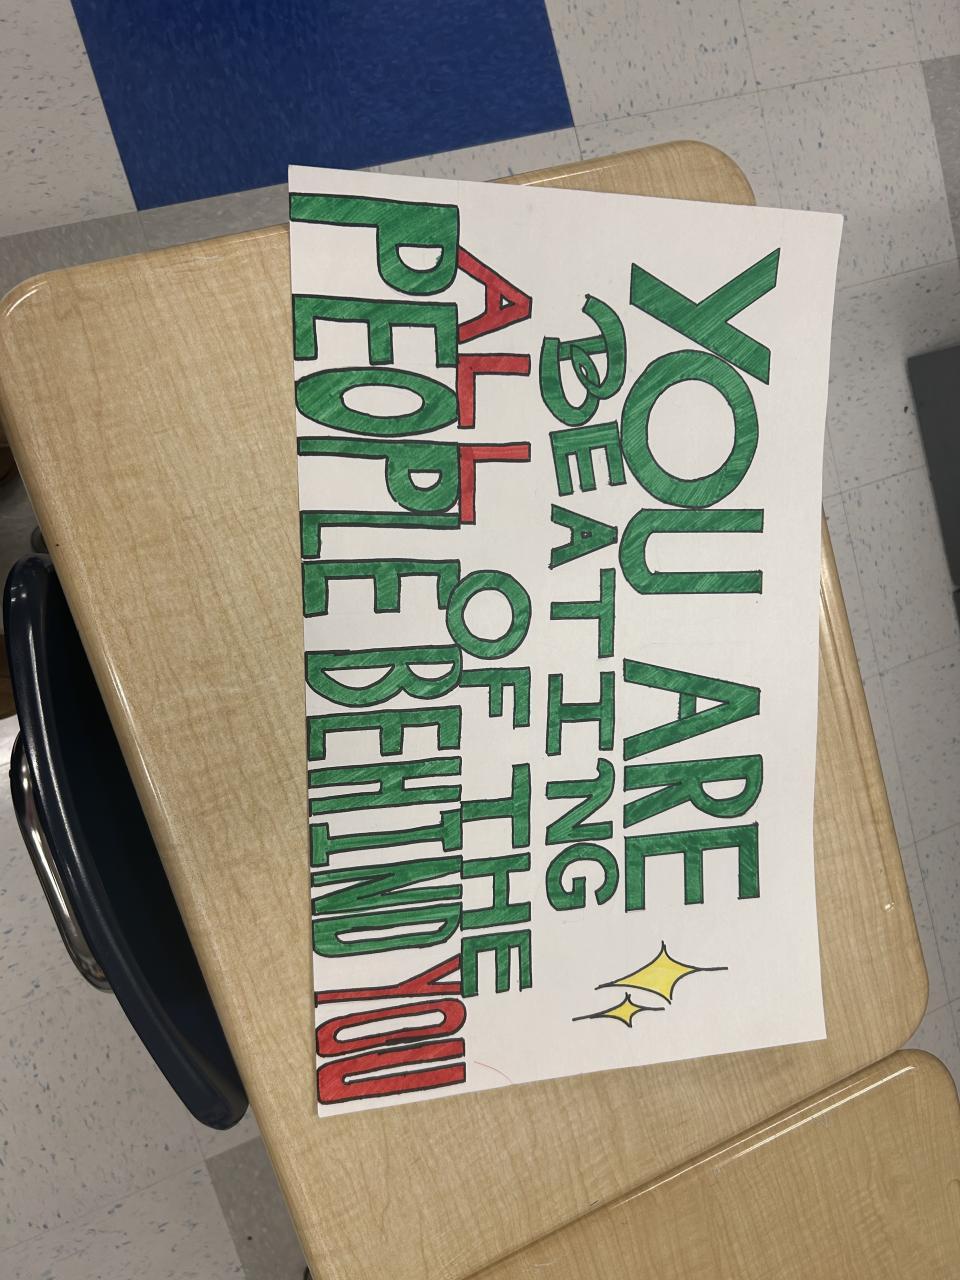 YOU ARE
BEATING
ALL OF THE
PEOPLE BEHIND YOU